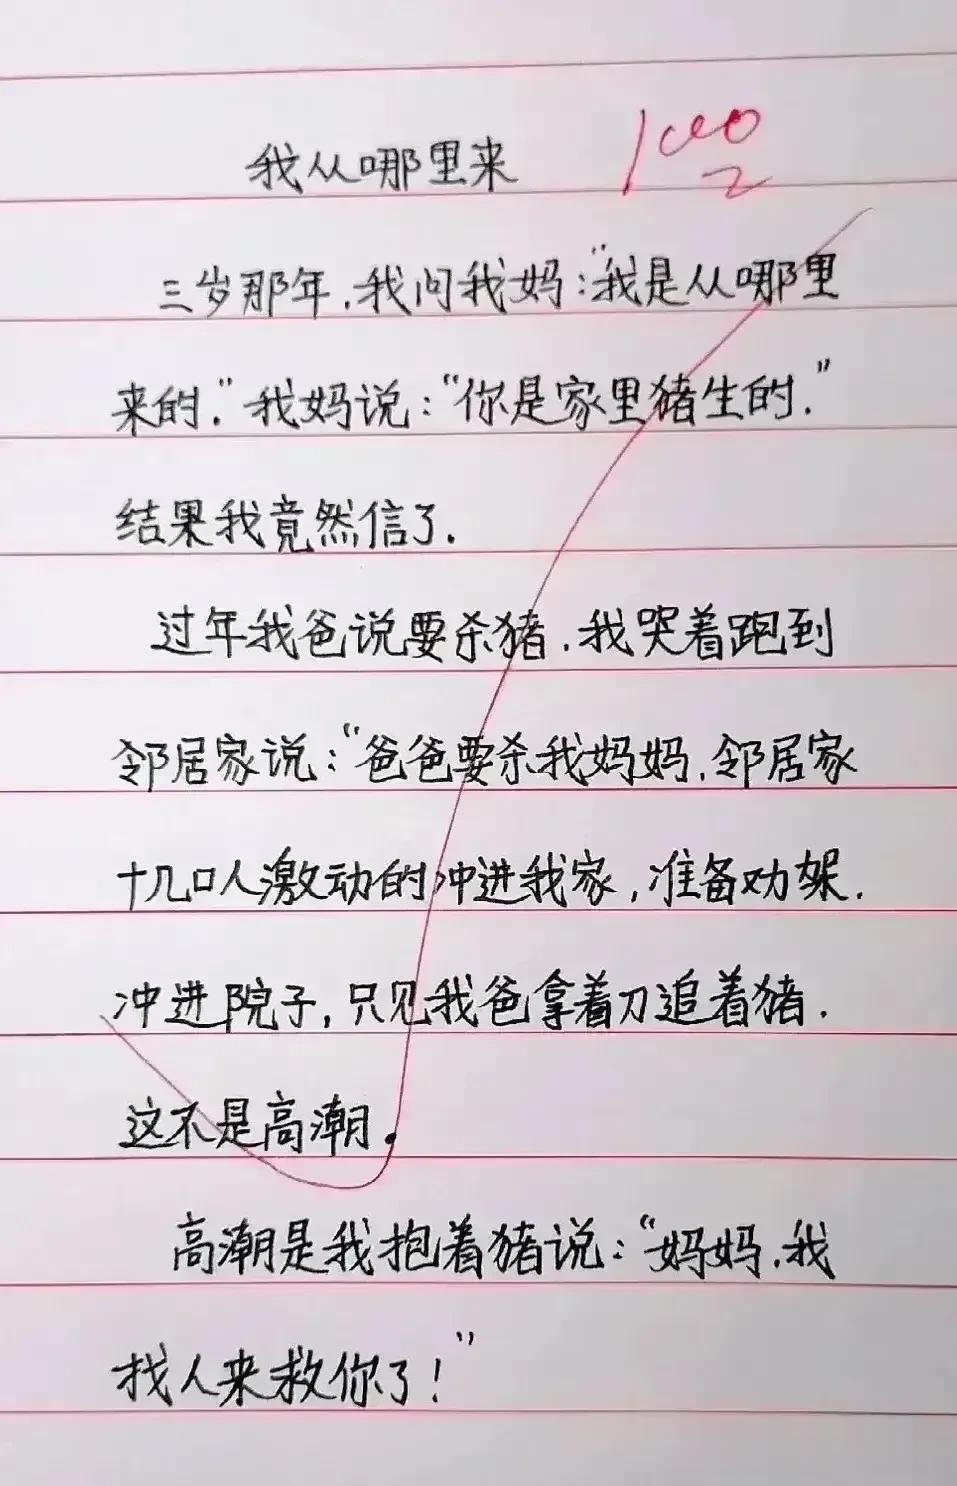 我从哪里来
100
三岁那年,我问我妈:“我是从哪里
来的.”我妈说:“你是家里猪生的.”
结果我竟然信了.
过年我爸说要杀猪,我哭着跑到
邻居家说:“爸爸要杀我妈妈,邻居家
十几口人激动的冲进我家,准备劝架.
冲进院子,只见我爸拿着刀追着猪.
这不是高潮.
高潮是我抱着猪说:“妈妈,我
找人来救你了!”